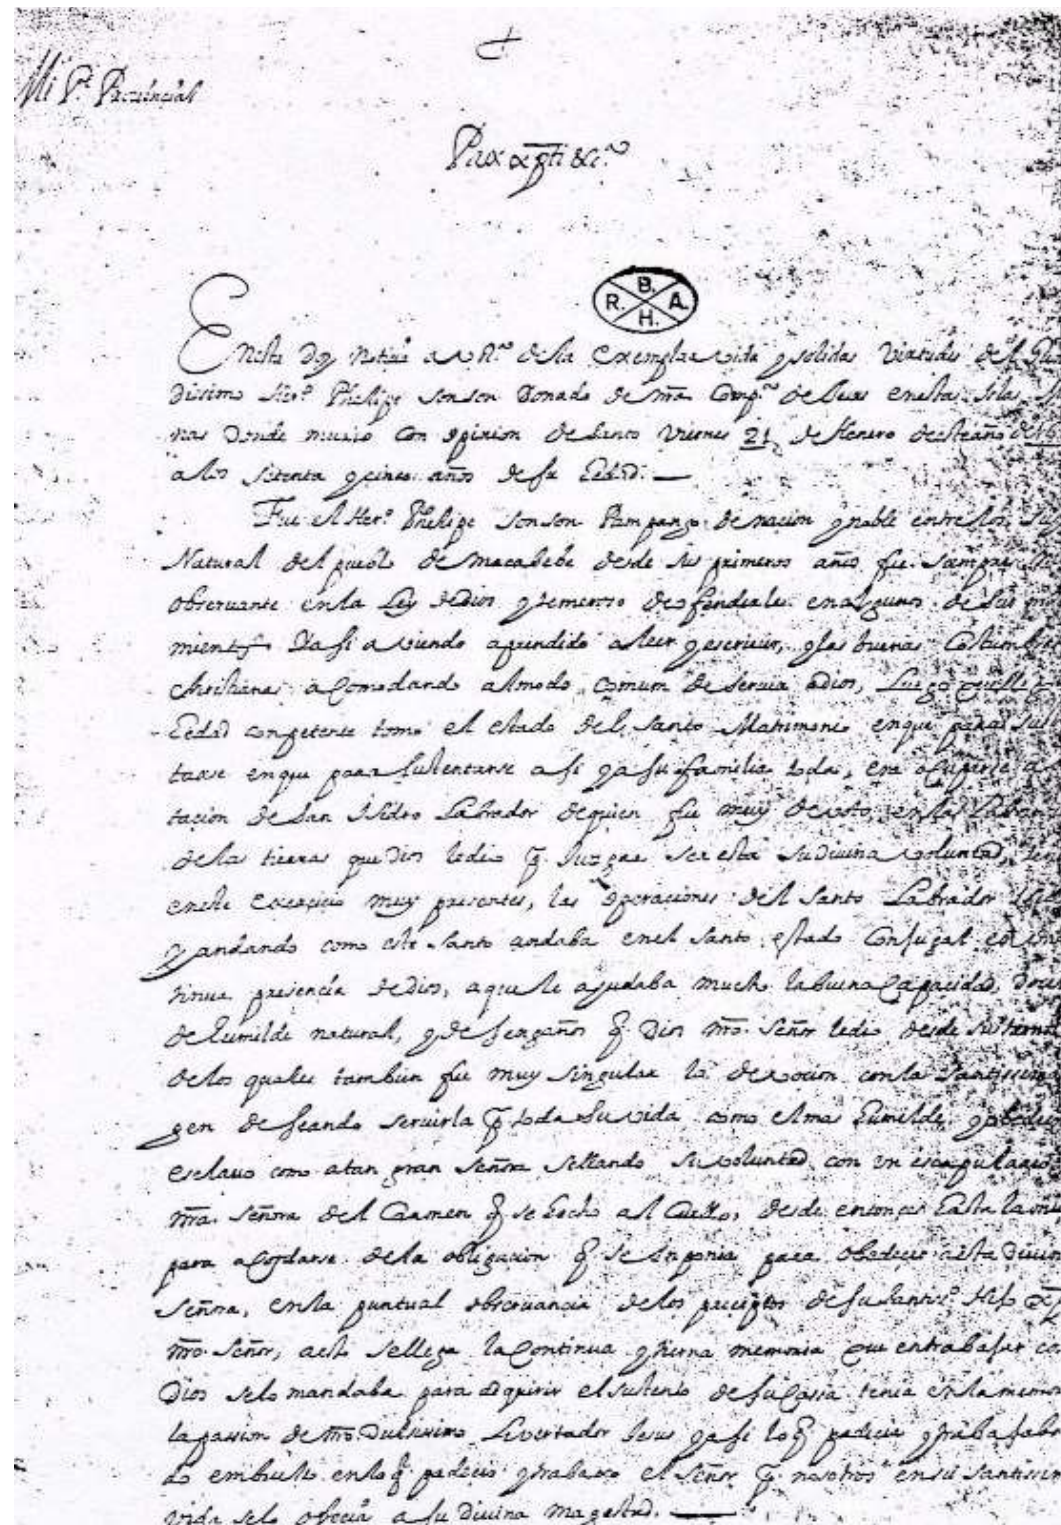 Mi P.e Prouincial
Pax xpti &c.a
B.
R. A.
H.
En esta doy noticia a V R.a de la exemplar vida y solidas virtudes del
dissimo Her.o Phelipe Sonson Donado de nra Comp.a de Jesus en estas Islas
nas donde murio con opinion de santo Viernes 21 de Henero deste año de
a los setenta y cinco años de su Edad.
Fue el Her.o Phelipe Sonson Pampango de nacion y noble entre los
Natural del pueblo de Macabebe desde sus primeros años fue siempre
obseruante en la Ley de Dios y temeroso de ofenderle en alguno de sus
mientos Y assi auiendo aprendido a leer y escriuir, y las buenas Costumbres
christianas acomodando al modo comum de seruir a Dios, Luego
Eedad competente tomo el estado del Santo Matrimonio en que para
tarse en que para sustentarse a si y a su familia toda, era ocuparse a
tacion de San Isidro Labrador de quien fue muy deuoto, en la
de las tierras que Dios le dio q juzgar ser esta su diuina voluntad,
en este exercicio muy presentes, las operaciones del Santo Labrador
y andando como este Santo andaba en el santo estado Conjugal
tinua presencia de Dios, a que le ayudaba mucho la buena Capacidad,
de humilde natural, y desengaños q Dios nro. Señor le dio desde
de los quales tambien fue muy singular la deuocion con la Santissima
gen deseando seruirla p toda su vida como el mas humilde,
esclauo como a tan gran Señora sellando su voluntad con vn escapulario
nra. Señora del Carmen q se hecho al Cuello, desde entonces hasta la
para acordarse de la obligacion q se imponia para obedecer a esta Diuina
Señora, en la puntual obseruancia de los preceptos de su Santis.o Hijo
nro. Señor, a esto se llega la Continua y tierna memoria que en trabajar
Dios se lo mandaba para adquirir el sustento de su Cassa tenia en la
la passion de nro. Dulcissimo Libertador Jesus y assi lo q padecia y trabajaba
do embuelto en lo q padecio y trabajo el Señor p nosotros en su santissima
vida se lo ofrecia a su Diuina Magestad.